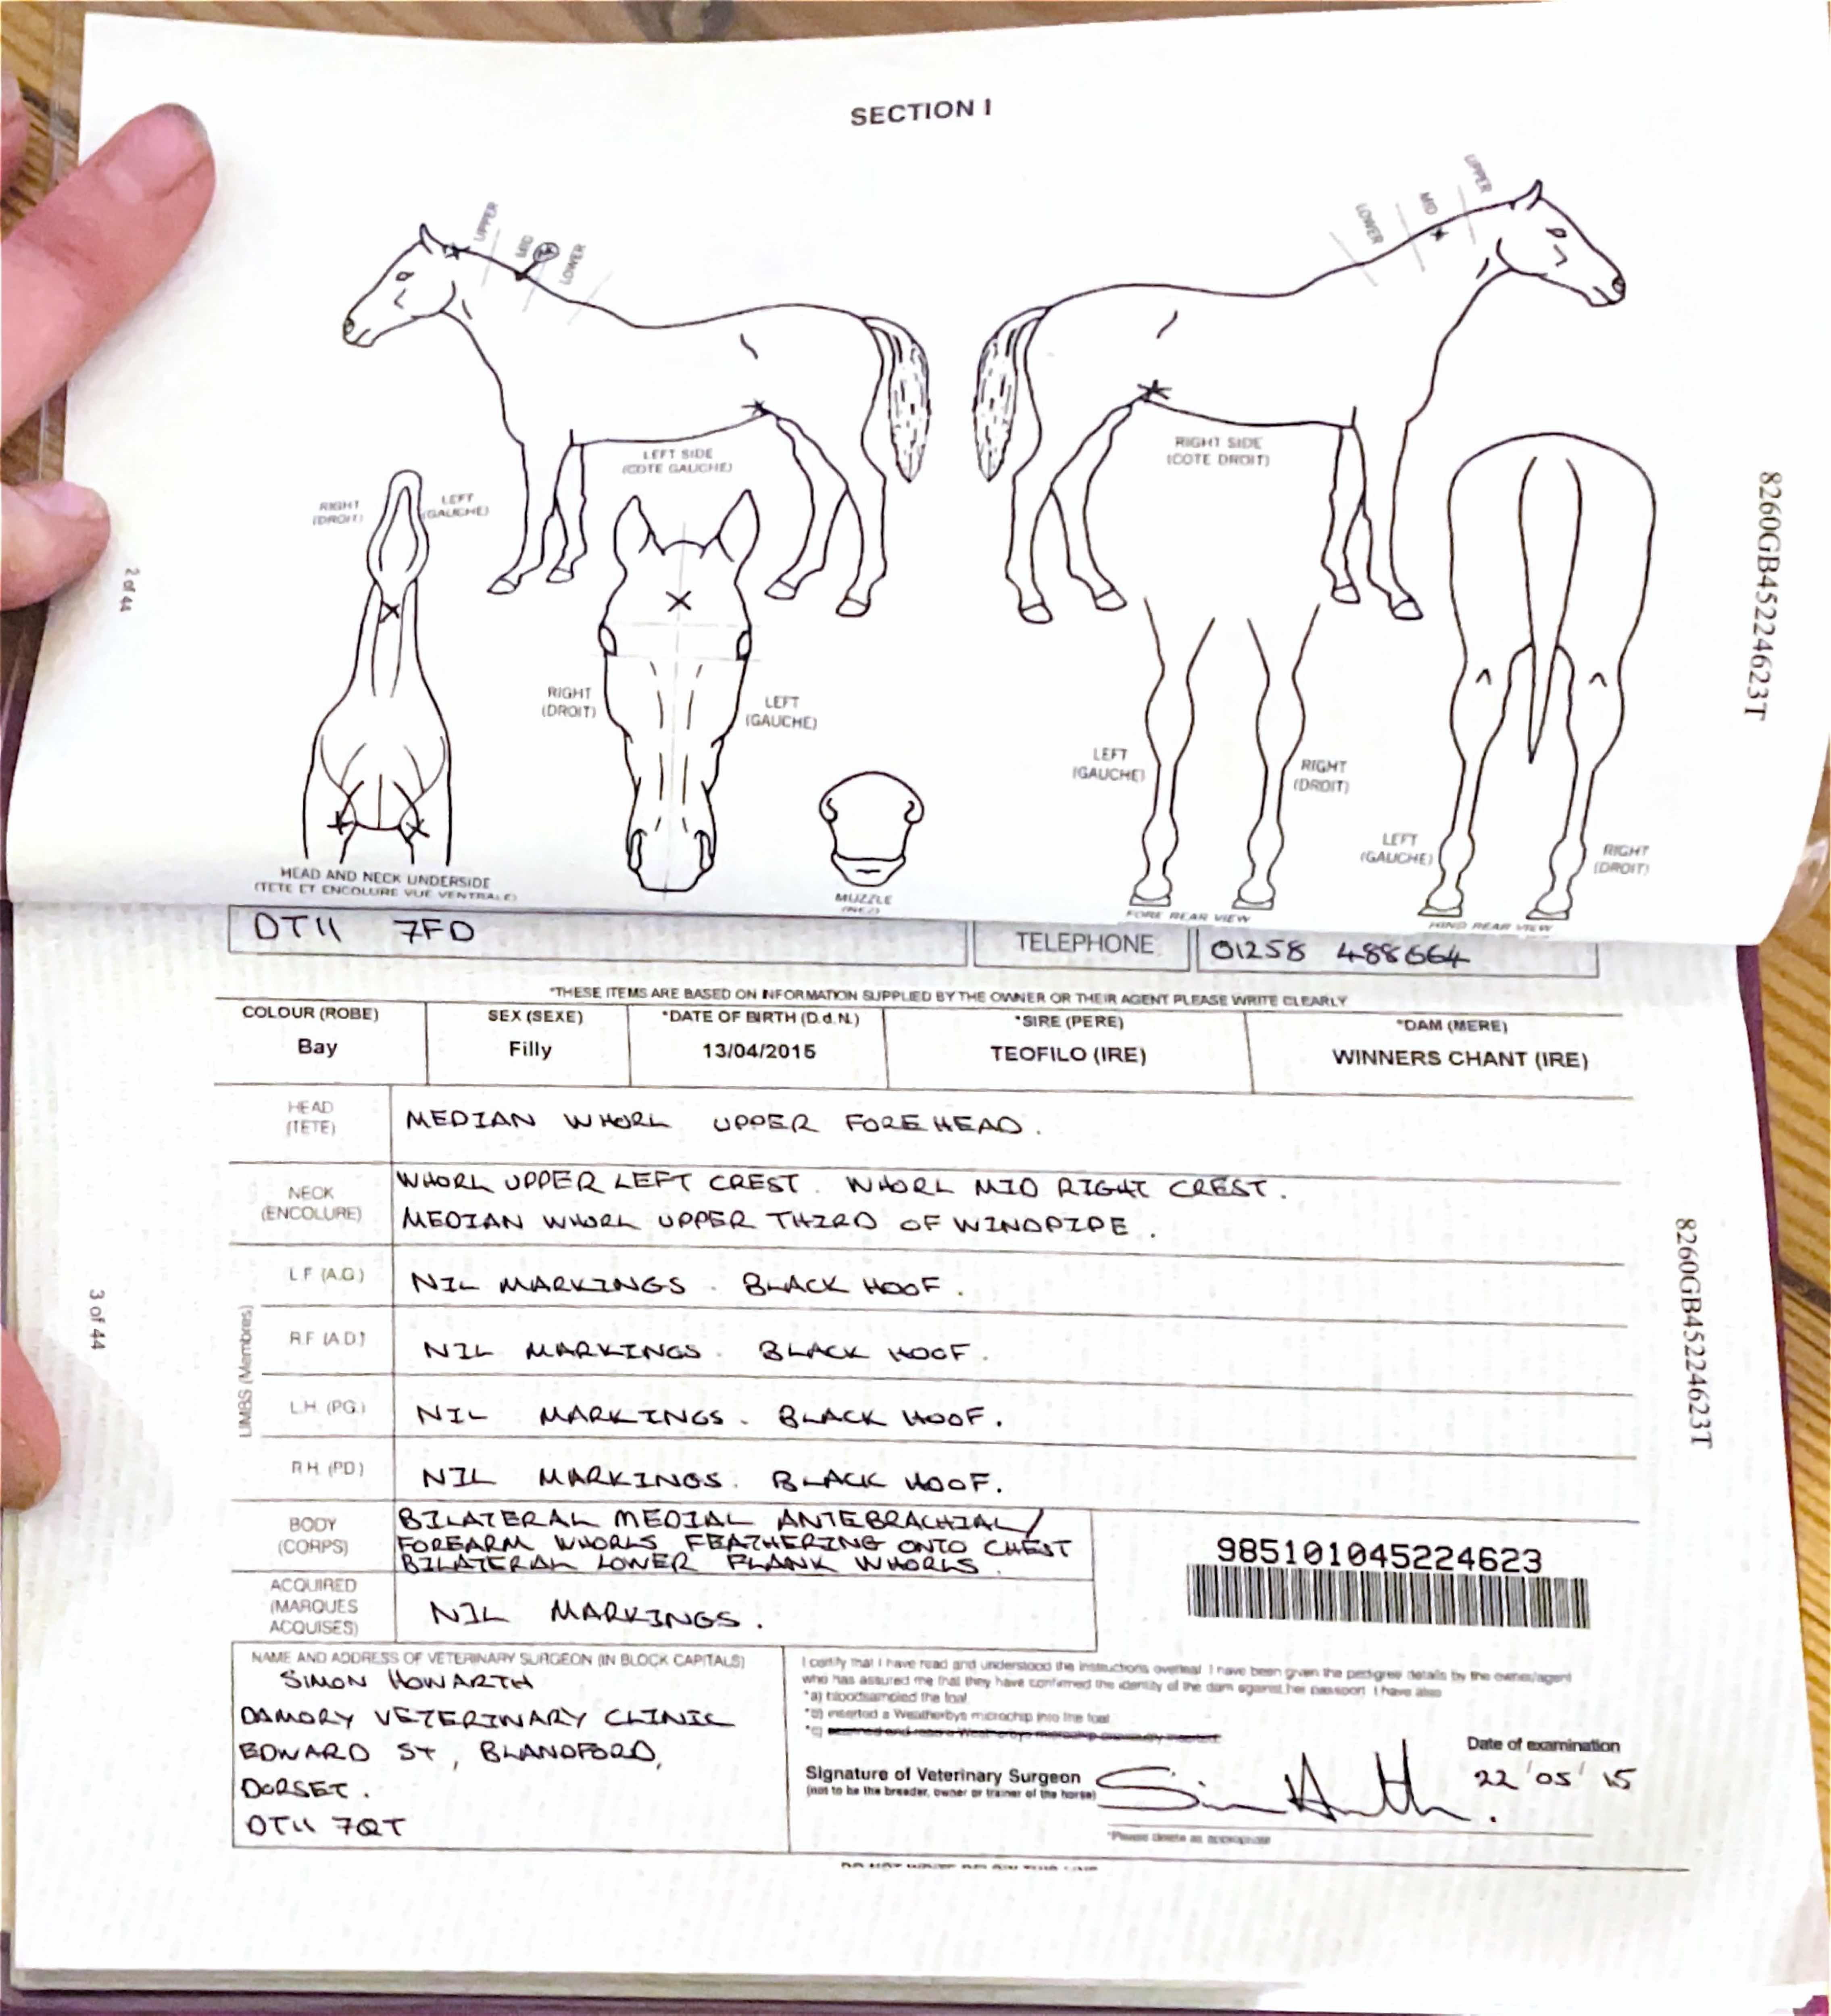 SECTION I
UPPER
MID
M
LOWER
LOWER
MID
UPPER
LEFT SIDE
(COTE GAUCHE)
RIGHT SIDE
(COTE DROIT)
RIGHT
(DROIT)
LEFT
(GAUCHE)
2 of 44
8260GB45224623T
RIGHT
(DROIT)
LEFT
(GAUCHE)
LEFT
(GAUCHE)
RIGHT
(DROIT)
LEFT
(GAUCHE)
RIGHT
(DROIT)
HEAD AND NECK UNDERSIDE
(TETE ET ENCOLURE VUE VENTRALE)
MUZZLE
(NEZ)
FORE REAR VIEW
HIND REAR VIEW
DT11 7FD
TELEPHONE
01258 488664
*THESE ITEMS ARE BASED ON INFORMATION SUPPLIED BY THE OWNER OR THEIR AGENT PLEASE WRITE CLEARLY
COLOUR (ROBE)
Bay
SEX (SEXE)
Filly
*DATE OF BIRTH (D.d.N.)
13/04/2015
*SIRE (PERE)
TEOFILO (IRE)
*DAM (MERE)
WINNERS CHANT (IRE)
HEAD
(TETE)
MEDIAN WHORL UPPER FOREHEAD.
NECK
(ENCOLURE)
WHORL UPPER LEFT CREST. WHORL MID RIGHT CREST.
MEDIAN WHORL UPPER THIRD OF WINDPIPE.
LIMBS (Membres)
L.F (A.G)
NIL MARKINGS. BLACK HOOF.
R.F (A.D)
NIL MARKINGS. BLACK HOOF.
L.H. (PG.)
NIL MARKINGS. BLACK HOOF.
R.H. (PD)
NIL MARKINGS. BLACK HOOF.
3 of 44
8260GB45224623T
BODY
(CORPS)
BILATERAL MEDIAL ANTEBRACHIAL/
FOREARM WHORLS FEATHERING ONTO CHEST
BILATERAL LOWER FLANK WHORLS.
985101045224623
ACQUIRED
(MARQUES
ACQUISES)
NIL MARKINGS.
NAME AND ADDRESS OF VETERINARY SURGEON (IN BLOCK CAPITALS)
SIMON HOWARTH
DAMORY VETERINARY CLINIC
EDWARD ST, BLANDFORD,
DORSET.
DT11 7QT
I certify that I have read and understood the instructions overleaf. I have been given the pedigree details by the owner/agent
who has assured me that they have confirmed the identity of the dam against her passport. I have also
*a) bloodsampled the foal
*b) inserted a Weatherbys microchip into the foal
*c) scanned and read a Weatherbys microchip previously inserted.
Signature of Veterinary Surgeon
(not to be the breeder, owner or trainer of the horse)
Date of examination
22/05/15
*Please delete as appropriate
DO NOT WRITE BELOW THIS LINE